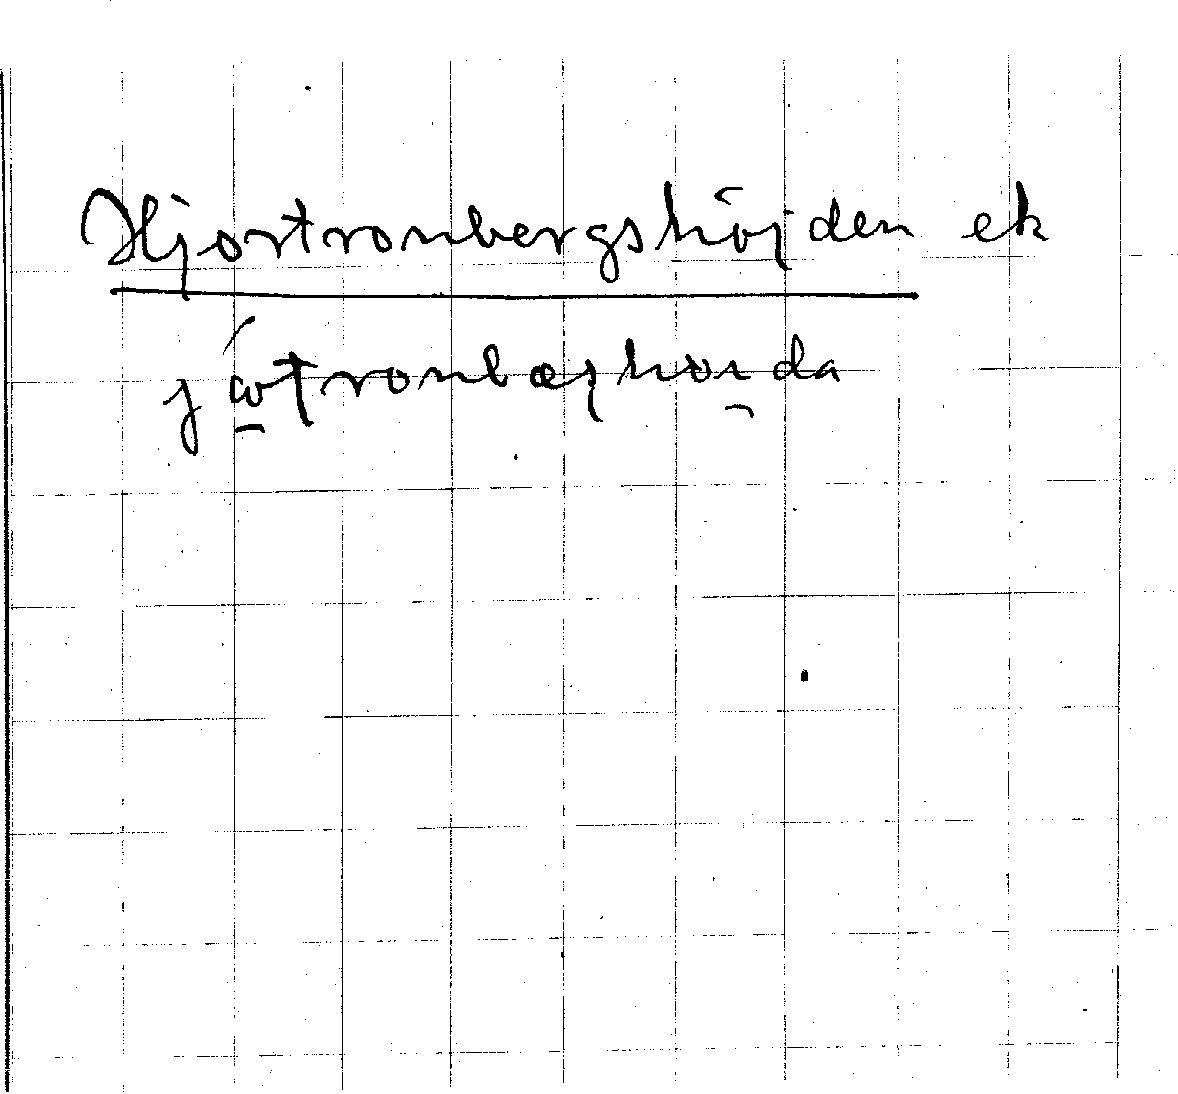 Hjortronbergshöjden ek
jó̱tronbæʃhoi̯da